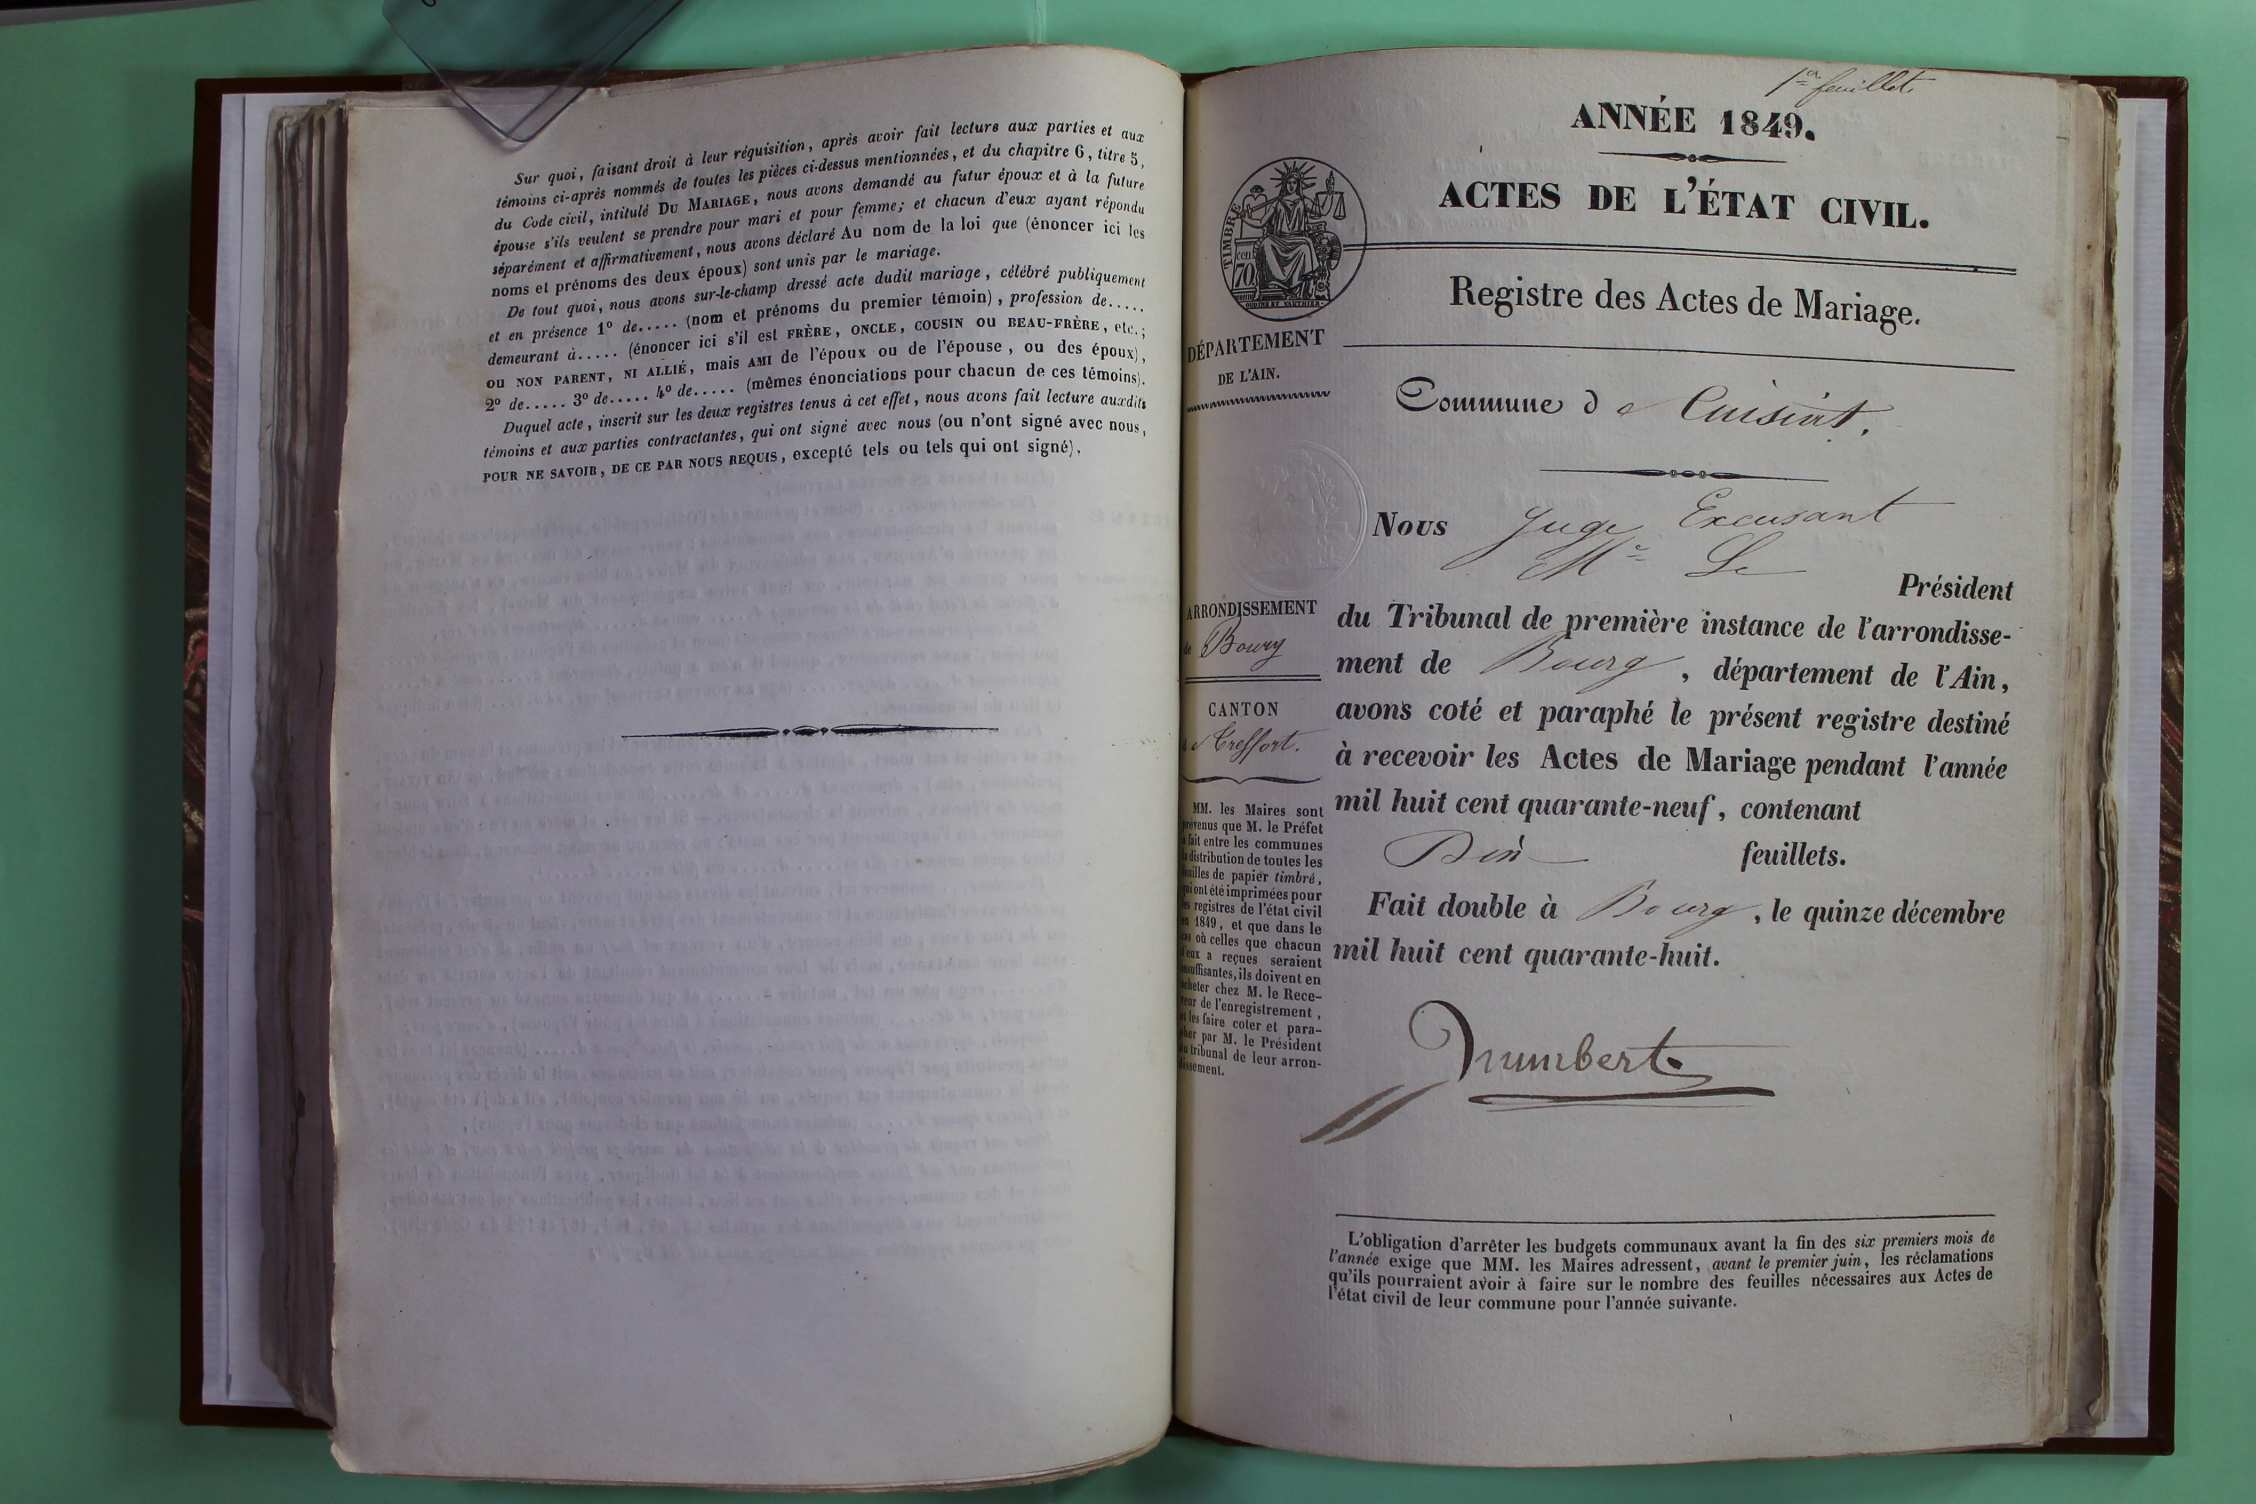 Sur quoi, faisant droit à leur réquisition, après avoir fait lecture aux parties et aux
témoins ci-après nommés de toutes les pièces ci-dessus mentionnées, et du chapitre 6, titre 5,
du Code civil, intitulé DU MARIAGE, nous avons demandé au futur époux et à la future
épouse s'ils veulent se prendre pour mari et pour femme; et chacun d'eux ayant répondu
séparément et affirmativement, nous avons déclaré Au nom de la loi que (énoncer ici les
noms et prénoms des deux époux) sont unis par le mariage.
De tout quoi, nous avons sur-le-champ dressé acte dudit mariage, célébré publiquement
et en présence 1º de..... (nom et prénoms du premier témoin), profession de.....
demeurant à..... (énoncer ici s'il est FRÈRE, ONCLE, COUSIN OU BEAU-FRÈRE, etc.;
OU NON PARENT, NI ALLIÉ, mais AMI de l'époux ou de l'épouse, ou des époux),
2º de..... 3º de..... 4º de..... (mêmes énonciations pour chacun de ces témoins).
Duquel acte, inscrit sur les deux registres tenus à cet effet, nous avons fait lecture auxdits
témoins et aux parties contractantes, qui ont signé avec nous (ou n'ont signé avec nous,
POUR NE SAVOIR, DE CE PAR NOUS REQUIS, excepté tels ou tels qui ont signé).
1er feuillet
ANNÉE 1849.
ACTES DE L'ÉTAT CIVIL.
TIMBRE
cen
70
Registre des Actes de Mariage.
DÉPARTEMENT
DE L'AIN.
Commune de Cuisiat.
Nous Juge Excusant
Mr Le
Président
du Tribunal de première instance de l'arrondisse-
ment de Bourg, département de l'Ain,
avons coté et paraphé le présent registre destiné
à recevoir les Actes de Mariage pendant l'année
mil huit cent quarante-neuf, contenant
Dix feuillets.
Fait double à Bourg, le quinze décembre
mil huit cent quarante-huit.
Humbert
ARRONDISSEMENT
de Bourg
CANTON
de Treffort.
MM. les Maires sont
prévenus que M. le Préfet
a fait entre les communes
la distribution de toutes les
feuilles de papier timbré,
qui ont été imprimées pour
les registres de l'état civil
en 1849, et que dans le
cas où celles que chacun
d'eux a reçues seraient
insuffisantes, ils doivent en
acheter chez M. le Rece-
veur de l'enregistrement,
et les faire coter et para-
pher par M. le Président
du tribunal de leur arron-
dissement.
L'obligation d'arrêter les budgets communaux avant la fin des six premiers mois de
l'année exige que MM. les Maires adressent, avant le premier juin, les réclamations
qu'ils pourraient avoir à faire sur le nombre des feuilles nécessaires aux Actes de
l'état civil de leur commune pour l'année suivante.